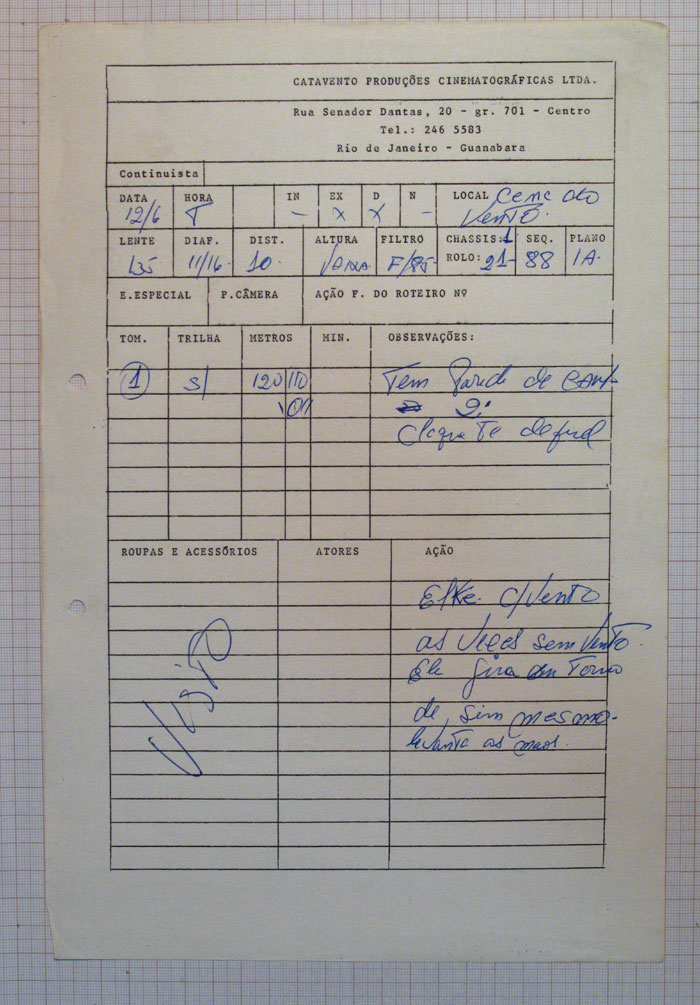 CATAVENTO PRODUÇÕES CINEMATOGRÁFICAS LTDA.
Rua Senador Dantas, 20 - gr. 701 - Centro
Tel.: 246 5583
Rio de Janeiro - Guanabara
Continuista
DATA HORA IN EX D N LOCAL Cena do
12/6 T - X X - Vento.
LENTE DIAF. DIST. ALTURA FILTRO CHASSIS: 1 SEQ. PLANO
L35 11/16 10. F/85 ROLO: 21 88 1A.
E.ESPECIAL P.CÂMERA AÇÃO F. DO ROTEIRO Nº
TOM. TRILHA METROS MIN. OBSERVAÇÕES:
1 s/ 120 110 Tem de
2ª
Claquete de
ROUPAS E ACESSÓRIOS ATORES AÇÃO
Elke c/vento
as vezes sem vento.
Ele gira em Torno
de sim mesmo.
levanta as maos.
Visto